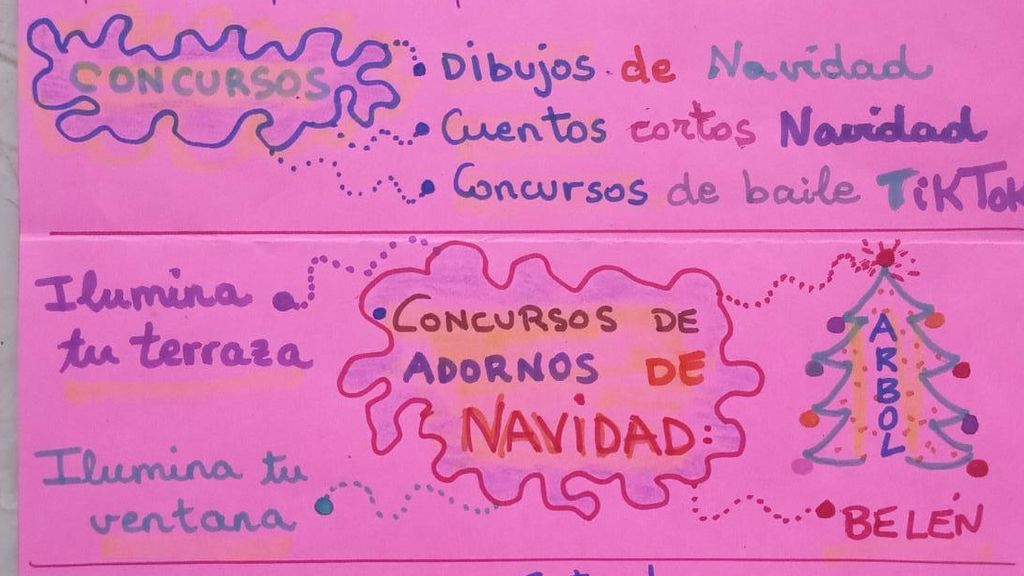 CONCURSOS
Dibujos de Navidad
Cuentos cortos Navidad
Concursos de baile TikTok
Ilumina
tu terraza
CONCURSOS DE
ADORNOS DE
NAVIDAD:
ARBOL
Ilumina tu
ventana
BELÉN